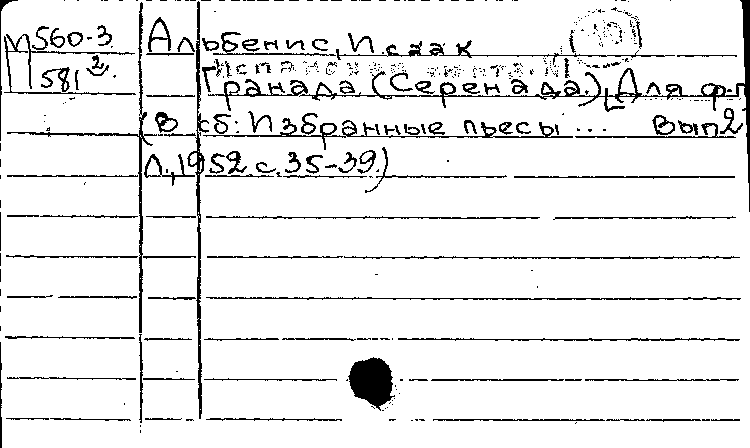 М 560-3 Альбенис, Исаак
581 2. Испанская сюита. №1
Гранада (Серенада.) [Для ф-п
(В сб: Избранные пьесы ... Вып2
Л., 1952 с. 35-39.)